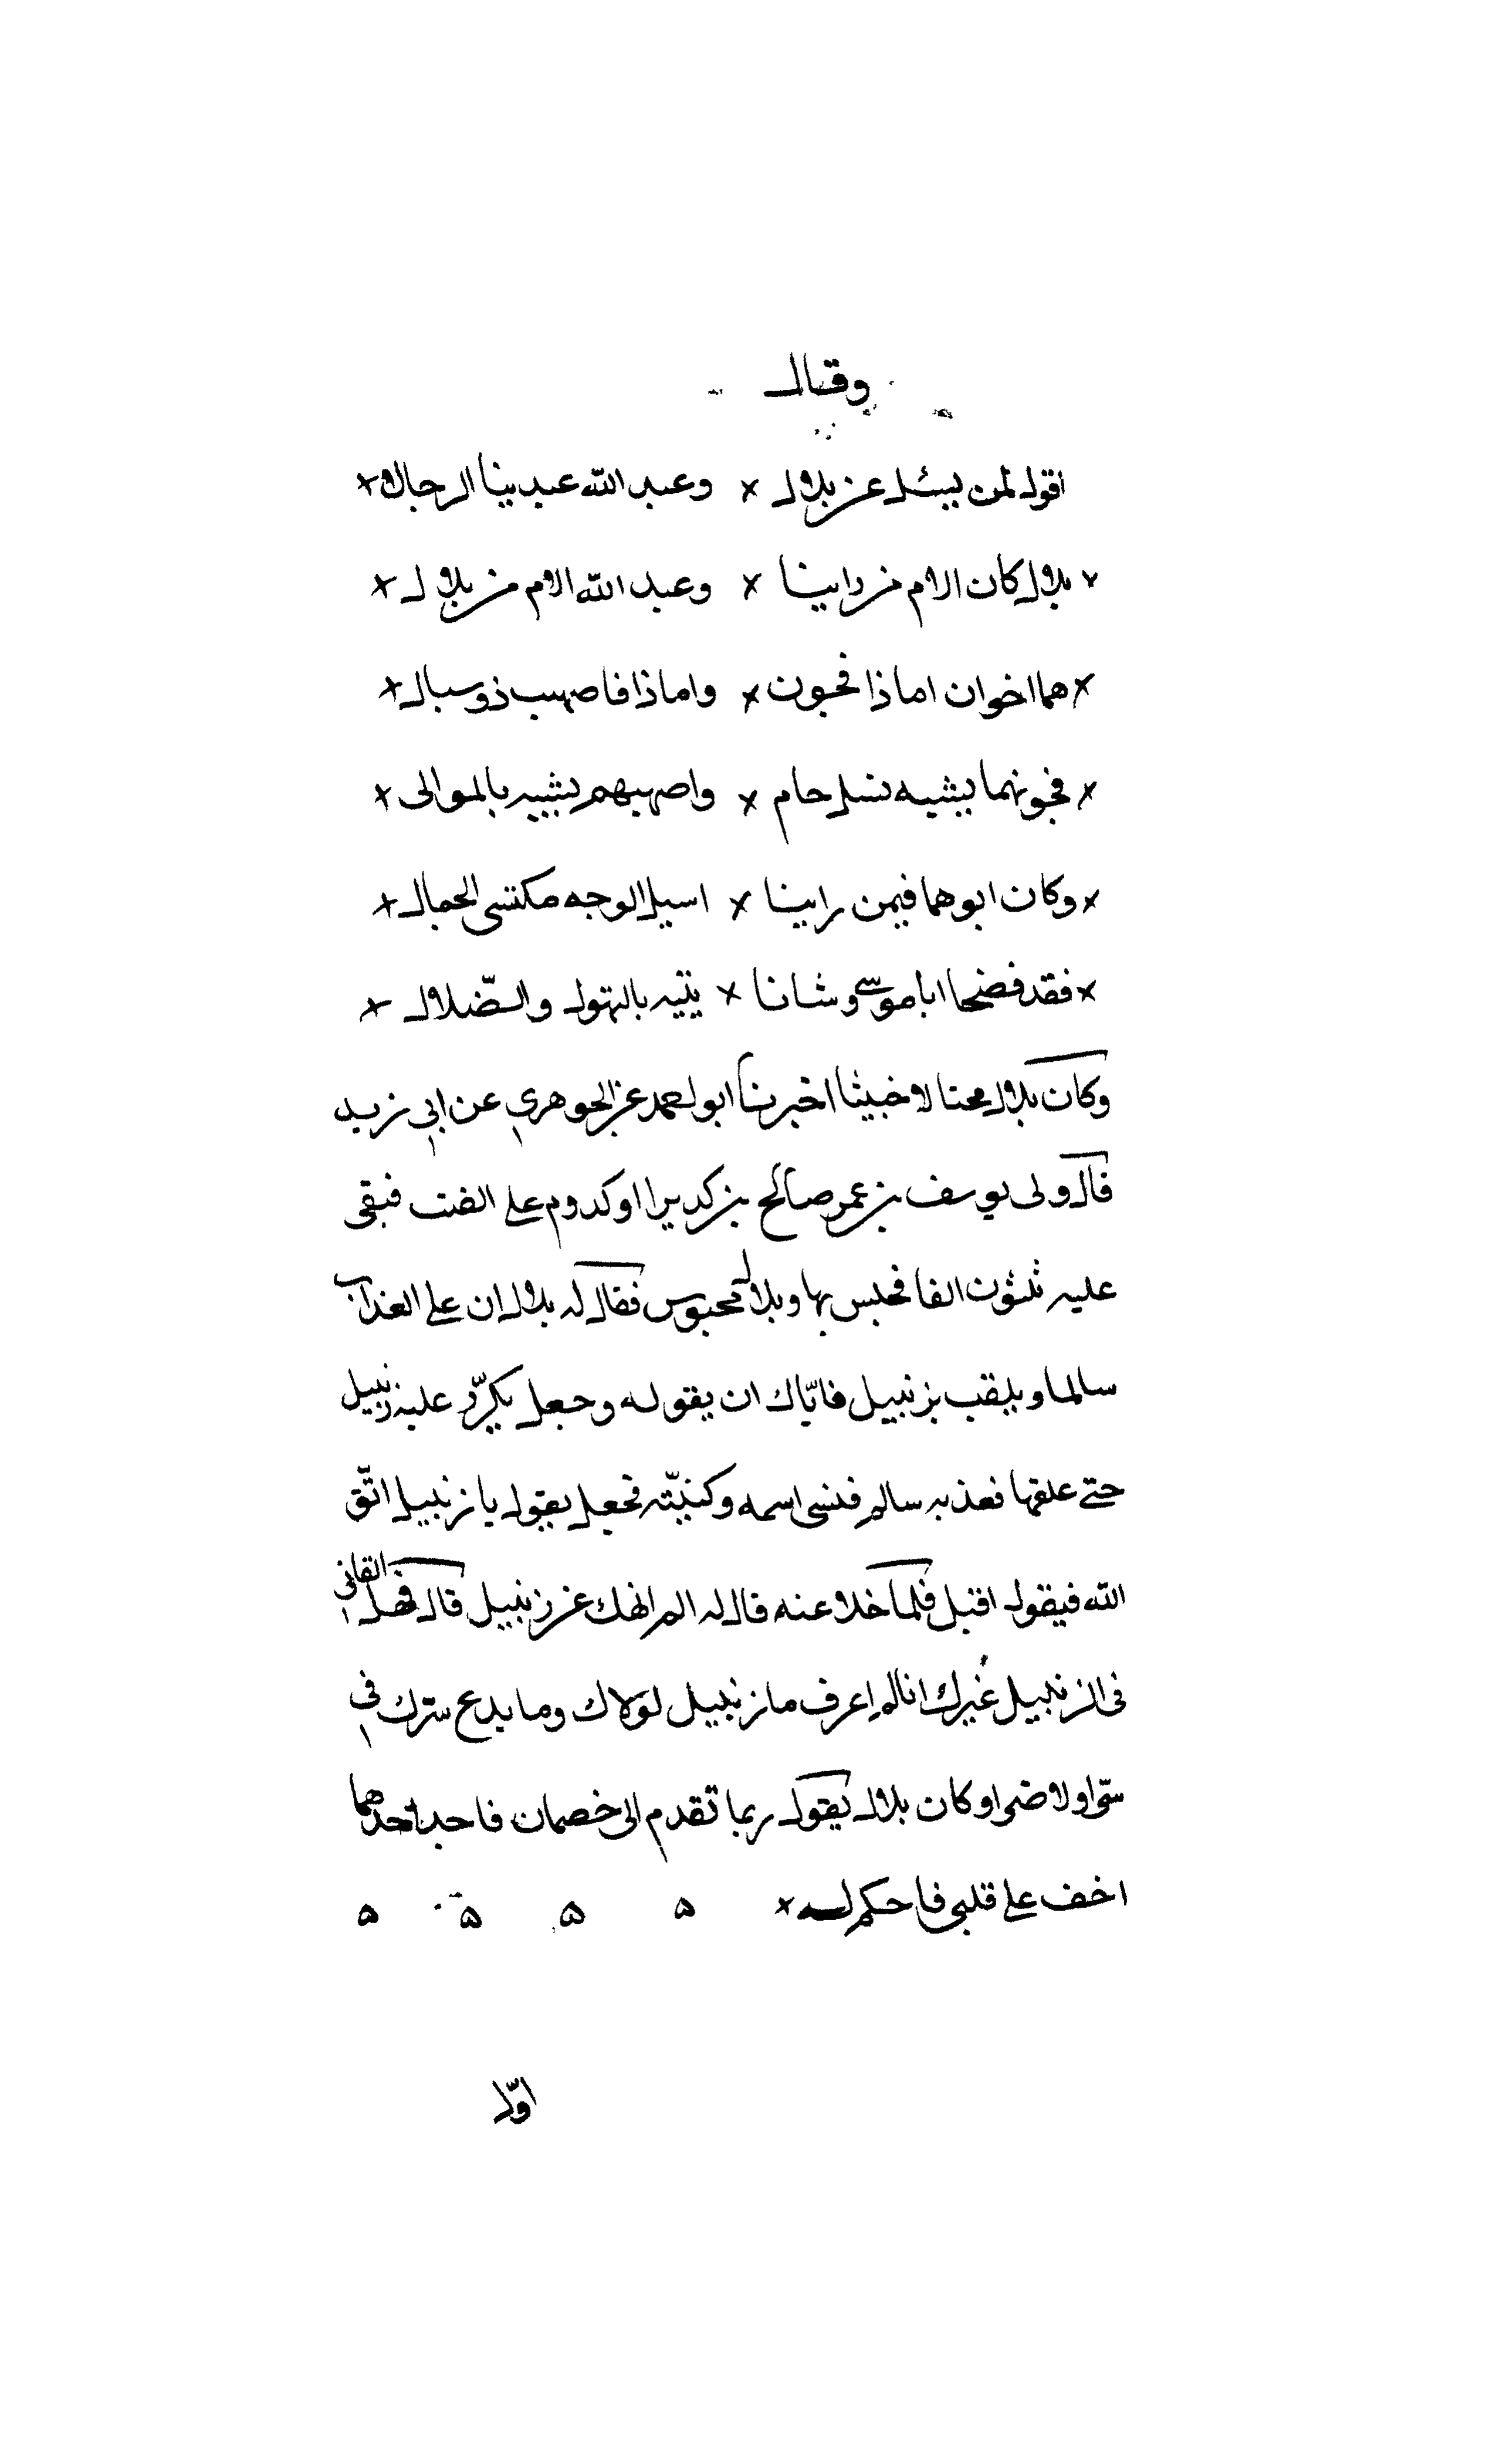 وقال
اقول لمن يسئل عن بلال × وعبد الله عبد بينا الرجال ×
× بلال كان الام من راينا × وعبد الله الام من بلال ×
× هما اخوان اما ذا فجون × واما ذا فاصهب ذو سبال ×
× فجونهما يشبه نسل حام × واصهبهم يشبه بالموالى ×
× وكان ابوهما فيمن راينا × اسيل الوجه مكتسى الجمال ×
× فقد فضحا ابا موسى وشانا × بنيه بالتهول والضلال ×
وكان بلال محتالا خبيثا اخبرنا ابو احمد عن الجوهري عن ابي زيد
قال ولى يوسف بن عمر صالح بن كديرا اوكدوم على الفت فبقى
عليه ثلثون الفا فحبس بها وبلال محبوس فقال له بلال ان على العذاب
سالما ويلقب بزنبيل فاياك ان يقوله وجعل يكرّر عليه زنبيل
حتى علقها فعذبه سالم فنسى اسمه وكنيته فجعل يقول يا زنبيل اتّق
الله فيقول اقبل فلما خلا عنه قال له الم انهك عن زنبيل قال فهل القاني
فى الزنبيل غيرك انا لم اعرف ما زنبيل لولاك وما يدع شرك في
سّرا ولا ضرا وكان بلال يقول ربما تقدم الى خصمان فاجد احدهما
اخف على قلبى فاحكم له × ۵ ۵ ۵ ۵
اوّل